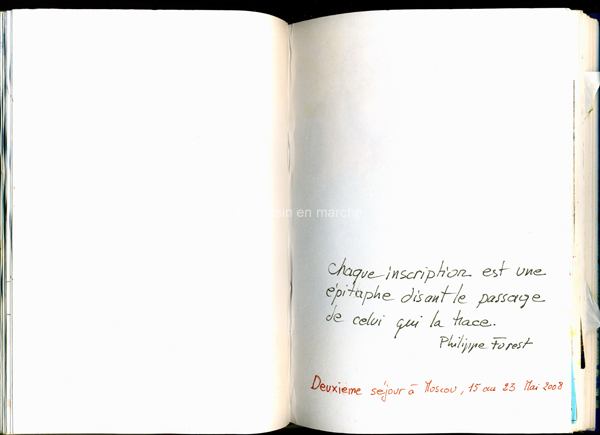 en marche
chaque inscription est une
épitaphe disant le passage
de celui qui la trace.
Philippe Forest
Deuxième séjour à Moscou, 15 au 23 Mai 2008